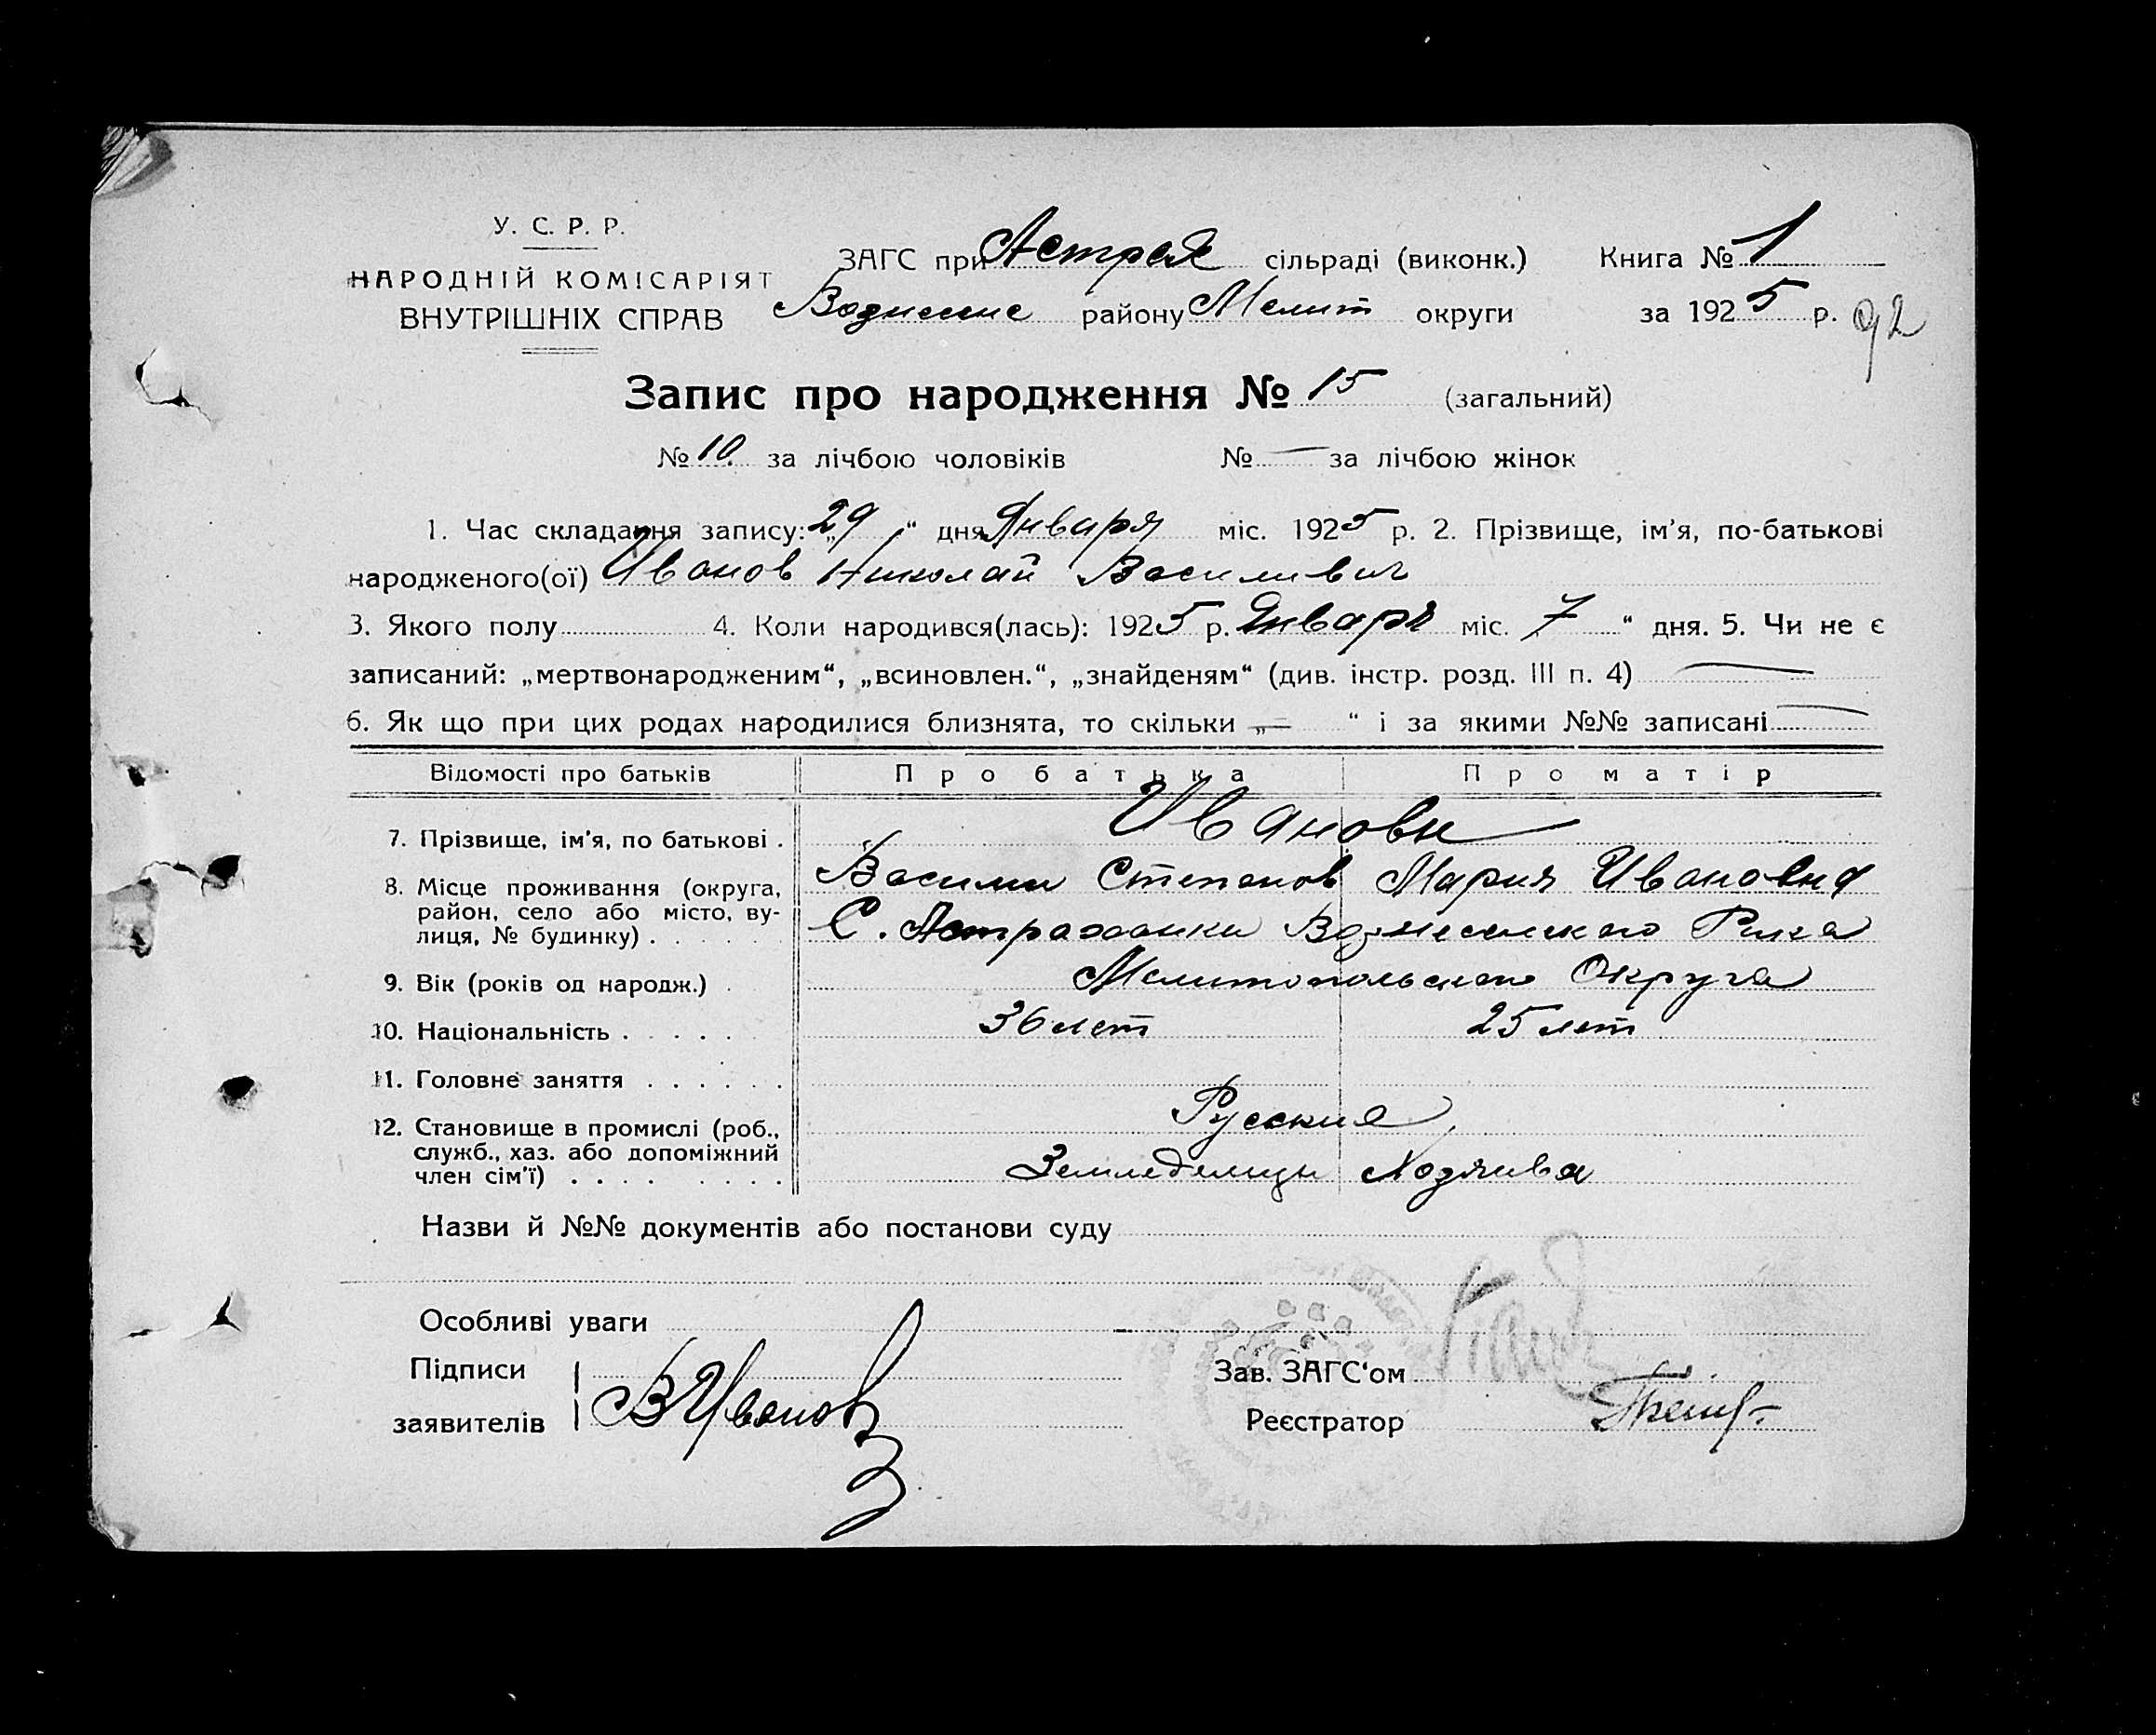 У. С. Р. Р.
НАРОДНІЙ КОМІСАРІЯТ
ВНУТРІШНІХ СПРАВ
ЗАГС при Астрах сільраді (виконк.) Книга № 1
району Мелит округи за 1925 р. 92
Запис про народження № 15 (загальний)
№ 10. за лічбою чоловіків № — за лічбою жінок
1. Час складання запису: „29“ дня Января міс. 1925 р. 2. Прізвище, ім'я, по-батькові
народженого(ої) Иванов Николай Василивич
3. Якого полу 4. Коли народився(лась): 1925 р. Января міс. „7“ дня. 5. Чи не є
записаний: „мертвонародженим“, „всиновлен.“, „знайденям“ (див. інстр. розд. III п. 4) —
6. Як що при цих родах народилися близнята, то скільки „—“ і за якими №№ записані —
Відомості про батьків Про батька Про матір
7. Прізвище, ім'я, по батькові . Ивановы
8. Місце проживання (округа, район, село або місто, вулиця, № будинку) . . . . . . Васили Степанов Мария Ивановна
С. Астраханки Вознесенского Р-на
9. Вік (років од народж.) . Мелитопольского Округа
10. Національність . . . . . 36 лет 25 лет
11. Головне заняття . . . . . .
12. Становище в промислі (роб., служб., хаз. або допоміжний член сім'ї) . . . . . . . . Русские
Земледельцы
Назви й №№ документів або постанови суду
Особливі уваги
Підписи
заявителів ВИванов
Зав. ЗАГС'ом
Реєстратор